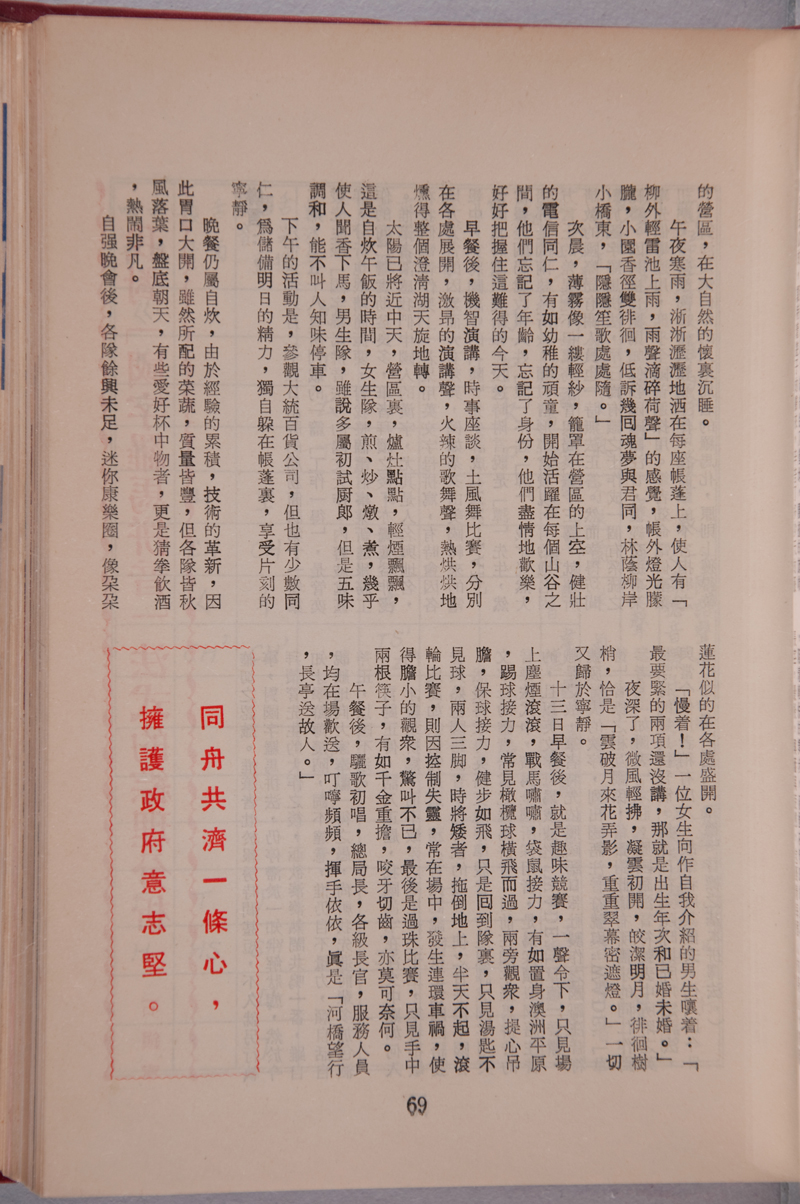 的營區，在大自然的懷裏沉睡。
午夜寒雨，淅淅瀝瀝地洒在每座帳蓬上，使人有「
柳外輕雷池上雨，雨聲滴碎荷聲」的感覺，帳外燈光朦
朧，小園香徑雙徘徊，低訴幾回魂夢與君同，林蔭柳岸
小橋東，「隱隱笙歌處處隨。」
次晨，薄霧像一縷輕紗，籠罩在營區的上空，健壯
的電信同仁，有如幼稚的頑童，開始活躍在每個山谷之
間，他們忘記了年齡，忘記了身份，他們盡情地歡樂，
好好把握住這難得的今天。
早餐後，機智演講，時事座談，土風舞比賽，分別
在各處展開，激昂的演講聲，火辣的歌舞聲，熱烘烘地
燻得整個澄清湖天旋地轉。
太陽已將近中天，營區裏，爐灶點點，輕煙飄飄，
這是自炊午飯的時間，女生隊，煎、炒、燉、煮，幾乎
使人聞香下馬，男生隊，雖說多屬初試厨郎，但是五味
調和，能不叫人知味停車。
下午的活動是，參觀大統百貨公司，但也有少數同
仁，爲儲備明日的精力，獨自躲在帳蓬裏，享受片刻的
寧靜。
晚餐仍屬自炊，由於經驗的累積，技術的革新，因
此胃口大開，雖然所配的菜蔬，質量皆豐，但各隊皆秋
風落葉，盤底朝天，有些愛好杯中物者，更是猜拳飲酒
，熱鬧非凡。
自强晚會後，各隊餘興未足，迷你康樂圈，像朶朶
蓮花似的在各處盛開。
「慢着！」一位女生向作自我介紹的男生嚷着：「
最要緊的兩項還沒講，那就是出生年次和已婚未婚。」
夜深了，微風輕拂，凝雲初開，皎潔明月，徘徊樹
梢，恰是「雲破月來花弄影，重重翠幕密遮燈。」一切
又歸於寧靜。
十三日早餐後，就是趣味競賽，一聲令下，只見場
上塵煙滾滾，戰馬嘯嘯，袋鼠接力，有如置身澳洲平原
，踢球接力，常見橄欖球橫飛而過，兩旁觀衆，提心吊
膽，保球接力，健步如飛，只是回到隊裏，只見湯匙不
見球，兩人三脚，時將矮者，拖倒地上，半天不起，滾
輪比賽，則因控制失靈，常在場中，發生連環車禍，使
得膽小的觀衆，驚叫不已，最後是過珠比賽，只見手中
兩根筷子，有如千金重擔，咬牙切齒，亦莫可奈何。
午餐後，驪歌初唱，總局長，各級長官，服務人員
，均在場歡送，叮嚀頻頻，揮手依依，眞是「河橋望行
，長亭送故人。」
同舟共濟一條心，
擁護政府意志堅。
69